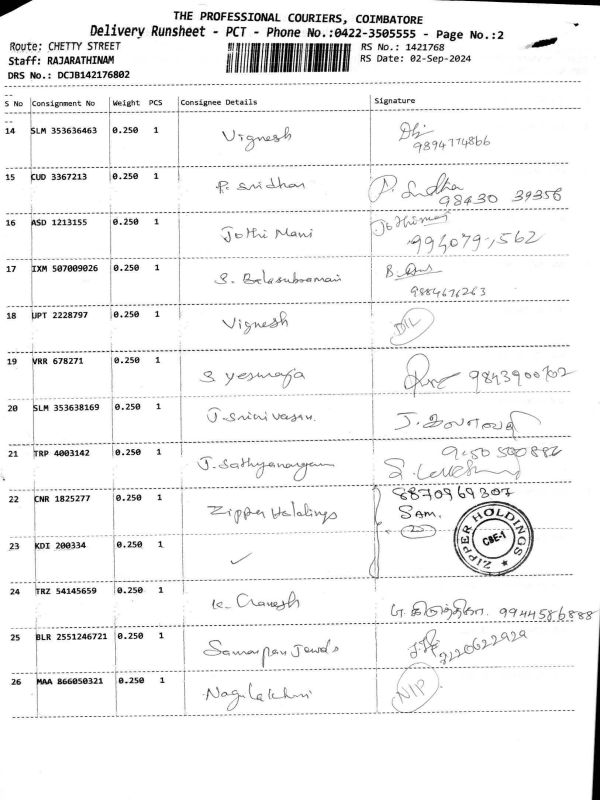 THE PROFESSIONAL COURIERS, COIMBATORE
Delivery Runsheet - PCT - Phone No.:0422-3505555 - Page No.:2
Route: CHETTY STREET RS No.: 1421768
Staff: RAJARATHINAM RS Date: 02-Sep-2024
DRS No.: DCJB142176802
S No Consignment No Weight PCS Consignee Details Signature
14 SLM 353636463 0.250 1 Vignesh
9894774866
15 CUD 3367213 0.250 1 P. Sridhar P. Sudha
98430 39356
16 ASD 1213155 0.250 1 Jothi Mani Jothimani
17 IXM 507009026 0.250 1 S. Balasubramani
9884676263
18 UPT 2228797 0.250 1 Vignesh
19 VRR 678271 0.250 1 9843900702
20 SLM 353638169 0.250 1 J. Srinivasan.
21 TRP 4003142 0.250 1 J. Sathyanarayan
22 CNR 1825277 0.250 1 Zipper Holdings 8870969307
SAM.
ZIPPER HOLDINGS
CBE-1
23 KDI 200334 0.250 1 ✓
24 TRZ 54145659 0.250 1 9944586888
25 BLR 2551246721 0.250 1 Samarpan Jewels
26 MAA 866050321 0.250 1 Nagulakshmi